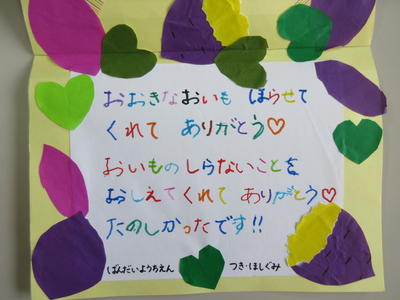 おおきなおいも ほらせて
くれて ありがとう♡
おいものしらないことを
おしえてくれて ありがとう♡
たのしかったです!!
ばんだいようちえん つき・ほしぐみ